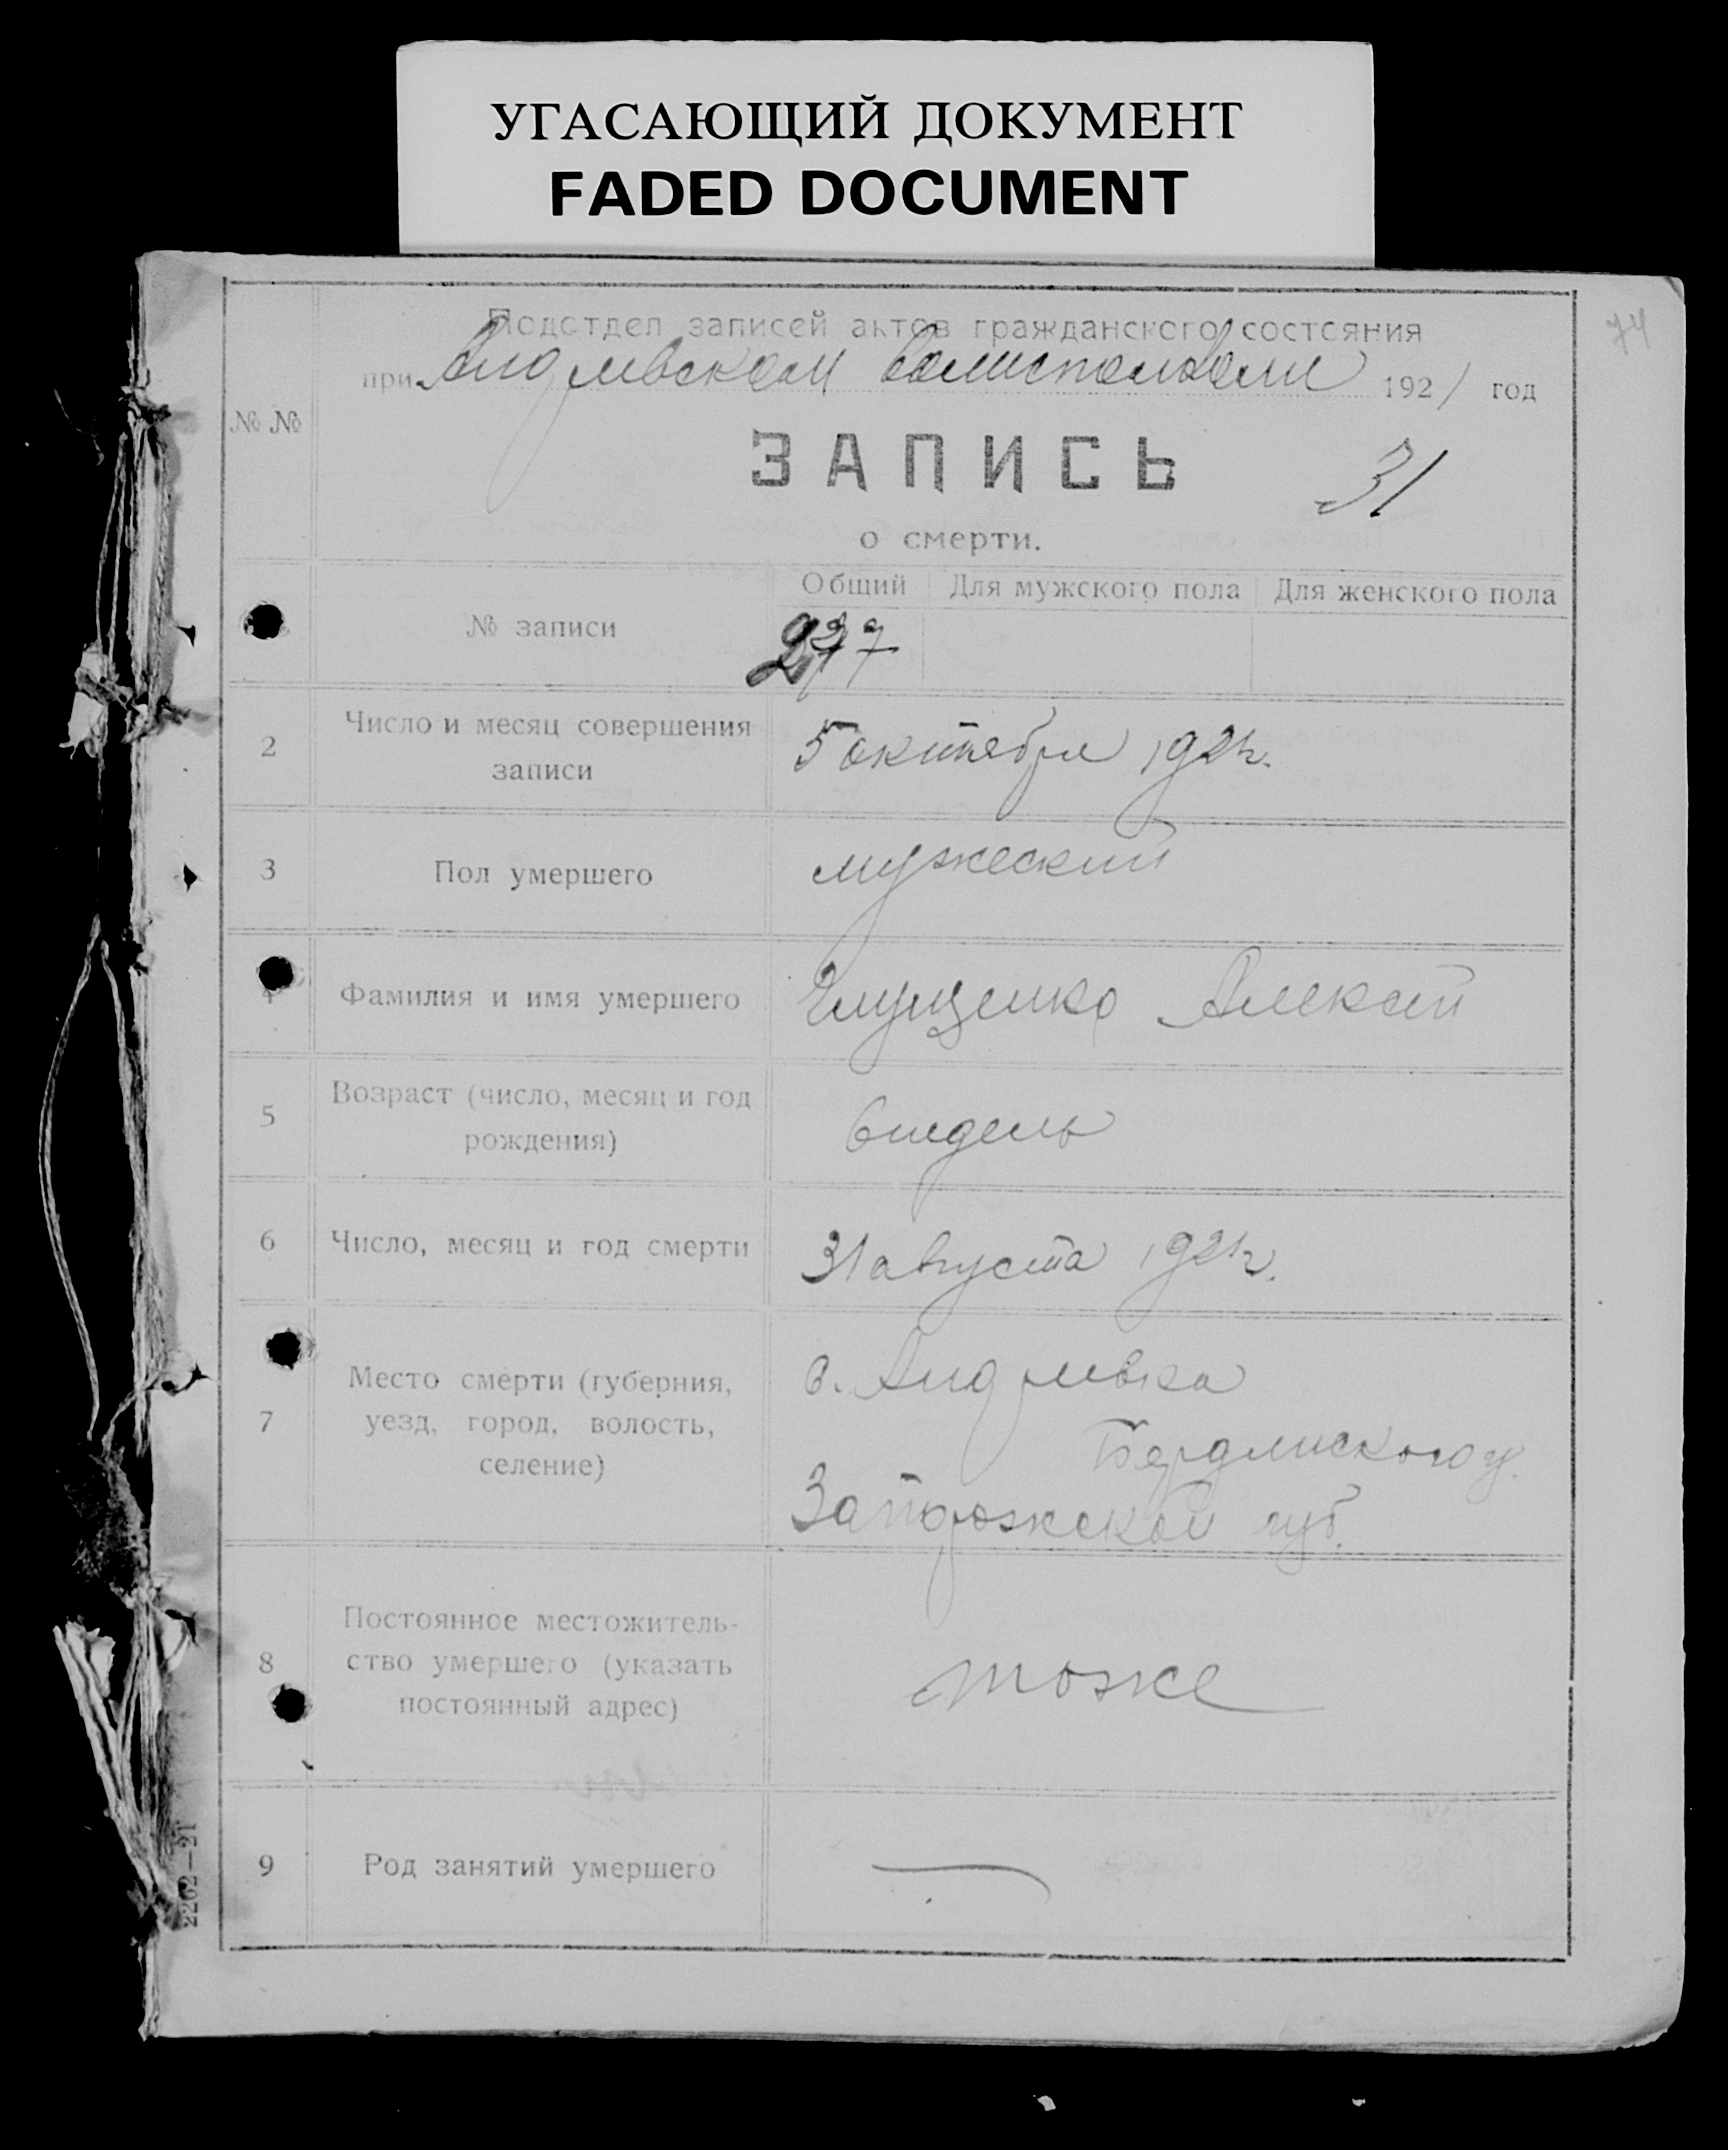 УГАСАЮЩИЙ ДОКУМЕНТ
FADED DOCUMENT
74
Подотдел записей актов гражданского состояния
при Андреевском Волисполкоме 1921 год
№ №
ЗАПИСЬ
31
о смерти.
Общий Для мужского пола Для женского пола
№ записи
2 Число и месяц совершения
записи
5 октября 1921 г.
3 Пол умершего мужеский
4 Фамилия и имя умершего Глущенко Алексей
5 Возраст (число, месяц и год
рождения)
6 недель
6 Число, месяц и год смерти 31 августа 1921 г.
7 Место смерти (губерния,
уезд, город, волость,
селение)
с. Андреевка
Бердянского у.
Запорожской губ.
8 Постоянное местожитель-
ство умершего (указать
постоянный адрес)
тоже
9 Род занятий умершего —
2262—21